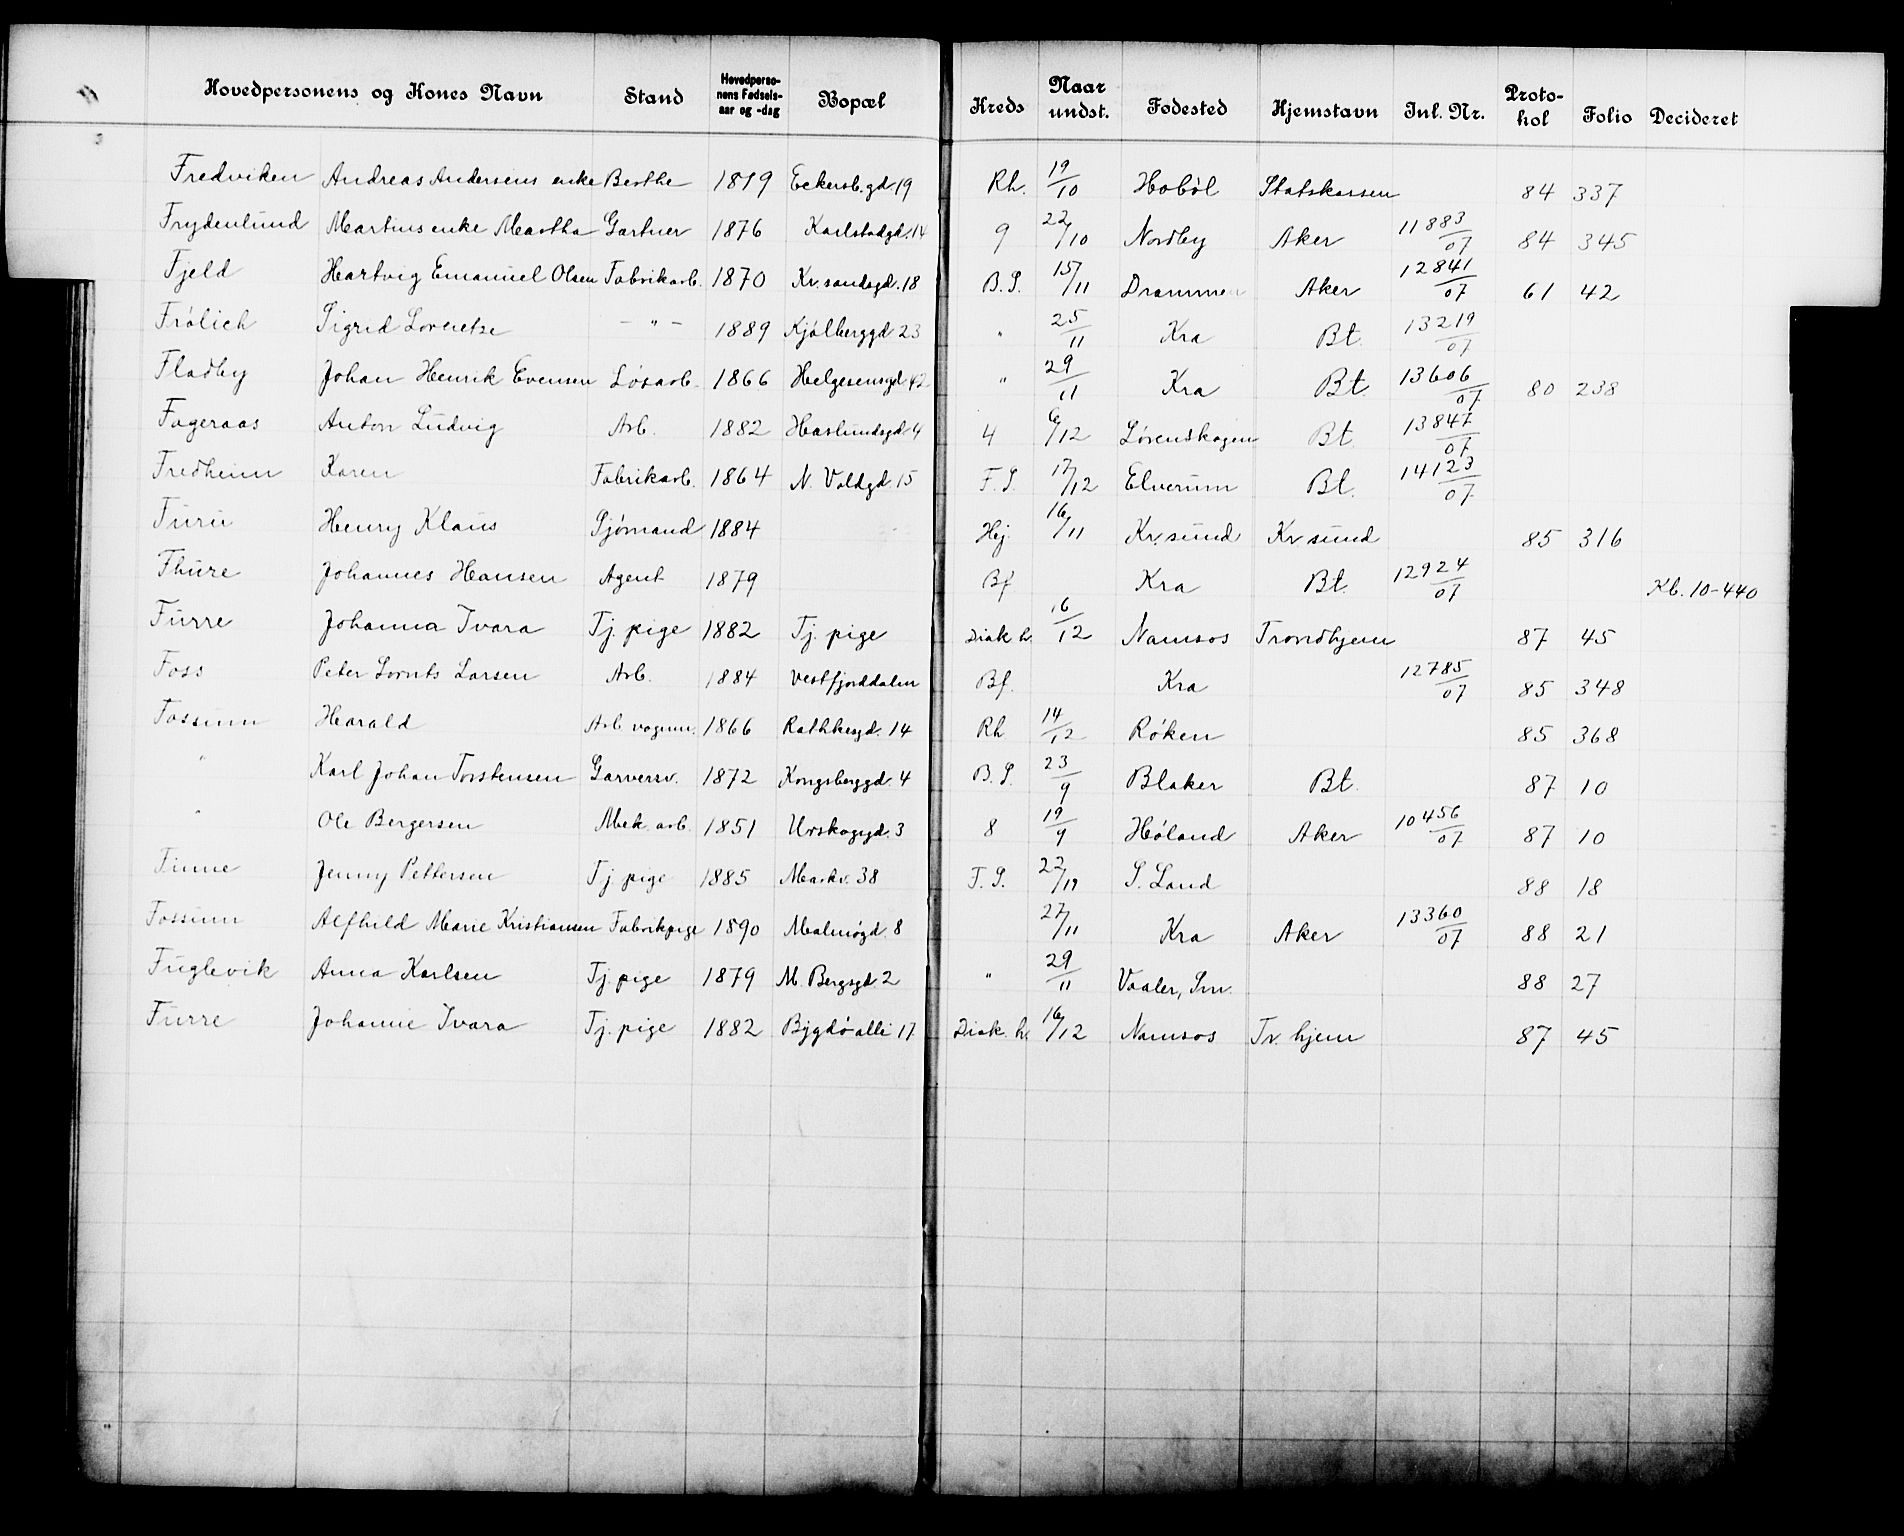 Hovedpersonens og Kones Navn Stand Hovedperso-nens Fødsels-aar og -dag Bopæl Kreds Naar undst. Fødested Hjemstavn Inl. Nr. Proto-kol Folio Decideret
Fredviken Andreas Andersens enke Berthe 1819 Eckersb.gd. 19 Rh. 19/10 Hobøl Statskassen 84 337
Frydenlund Martins enke Martha Gartner 1876 Karlstadgd. 14 9 22/10 Nordby Aker 11883/07 84 345
Fjeld Hartvig Emanuel Olsen Fabrikarb. 1870 Kr.sandsgd. 18 B.S. 15/11 Drammen Aker 12841/07 61 42
Frölich Sigrid Lorentze — " — 1889 Kjølberggd 23 " 25/11 Kra Bt. 13219/07
Fladby Johan Henrik Evensen Løsarb. 1866 Helgesensgd. 42 " 29/11 Kra Bt. 13606/07 80 238
Fageraas Anton Ludvig Arb. 1882 Haslundsgd. 4 4 6/12 Lørenskogen Bt. 13847/07
Fredheim Karen Fabrikarb. 1864 N. Voldgd. 15 F.S. 17/12 Elverum Bt. 14123/07
Furu Henry Klaus Sjømand 1884 Hej. 16/11 Kr.sund Kr sund 85 316
Fhure Johannes Hansen Agent 1879 Bf Kra Bt. 12924/07 Kb. 10-440
Furre Johanna Ivara Tj. pige 1882 Tj. pige Diak h. 16/12 Namsos Trondhjem 87 45
Foss Peter Lornts Larsen Arb. 1884 Vestfjorddalen Bf. Kra 12785/07 85 348
Fossum Harald Arb. vognm. 1866 Rathkesgd. 14 Rh 14/12 Røken 85 368
" Karl Johan Torstensen Garversv. 1872 Kongsberggd. 4 B.S. 23/9 Blaker Bt. 87 10
" Ole Bergersen Mek. arb. 1851 Urskoggd. 3 8 19/9 Høland Aker 10456/07 87 10
Finne Jenny Pettersen Tj. pige 1885 Markv. 38 F.S. 22/11 S. Land 88 18
Fossum Alfhild Marie Kristiansen Fabrikpige 1890 Malmøgd. 8 27/11 Kra Aker 13360/07 88 21
Fuglevik Anna Karlsen Tj. pige 1879 M. Bergsgd. 2 " 29/11 Vaaler, Sm. 88 27
Furre Johanne Ivara Tj. pige 1882 Bygdø alle 17 Diak. h. 16/12 Namsos Tr. hjem 87 45